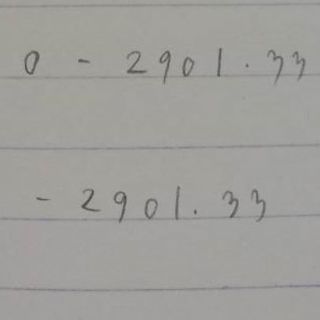 0 - 2901.33
- 2901.33